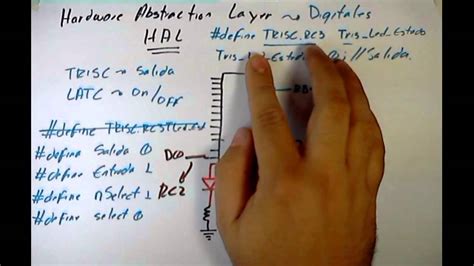 Hardware Abstraction Layer ~> Digitales
HAL
#define TRISC.RC3 Tris_Led_Estado
Tris_L Estado 0; // Salida.
TRISC ~> Salida
LATC ~> On/Off
#define TRISC.RC3
#define Salida 0
#define Entrada 1
#define nSelect 1
#define select 0
RC2